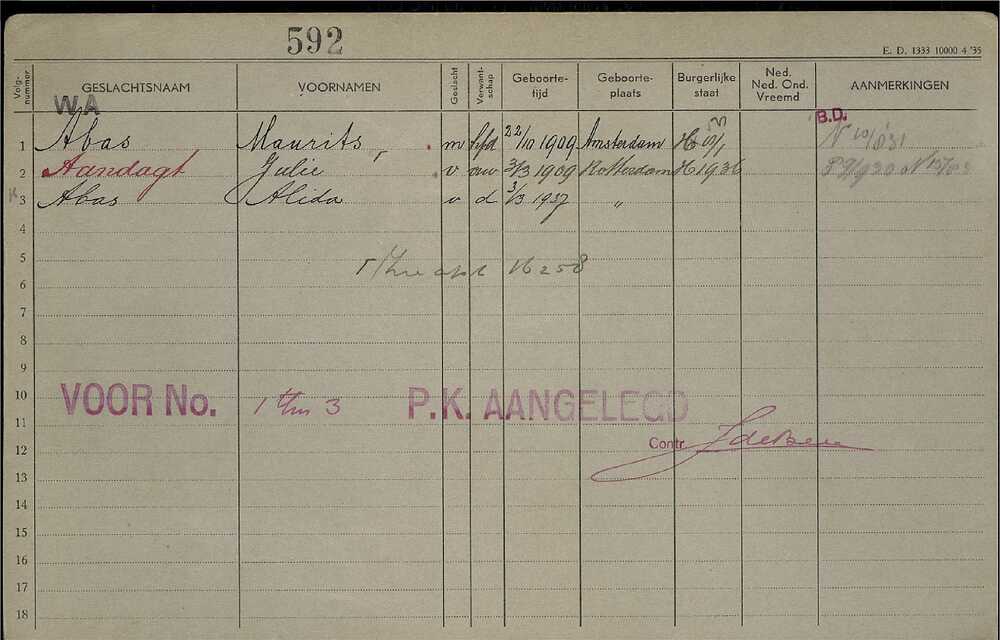 592
E. D. 1333 10000 4 '35
Volg-nummer GESLACHTSNAAM VOORNAMEN Geslacht Verwant-schap Geboorte-tijd Geboorte-plaats Burgerlijke staat Ned. Ned. Ond. Vreemd AANMERKINGEN
WA
B.D.
1 Abas Maurits m hfd 22/10 1909 Amsterdam H
2 Aandagt Julie v vw 3/3 1909 Rotterdam H 1936
3 Abas Alida v d 3/3 1937 "
4
5 16258
6
7
8
9
10 VOOR No. 1 t/m 3 P.K. AANGELEGD
11
12 Contr.
13
14
15
16
17
18